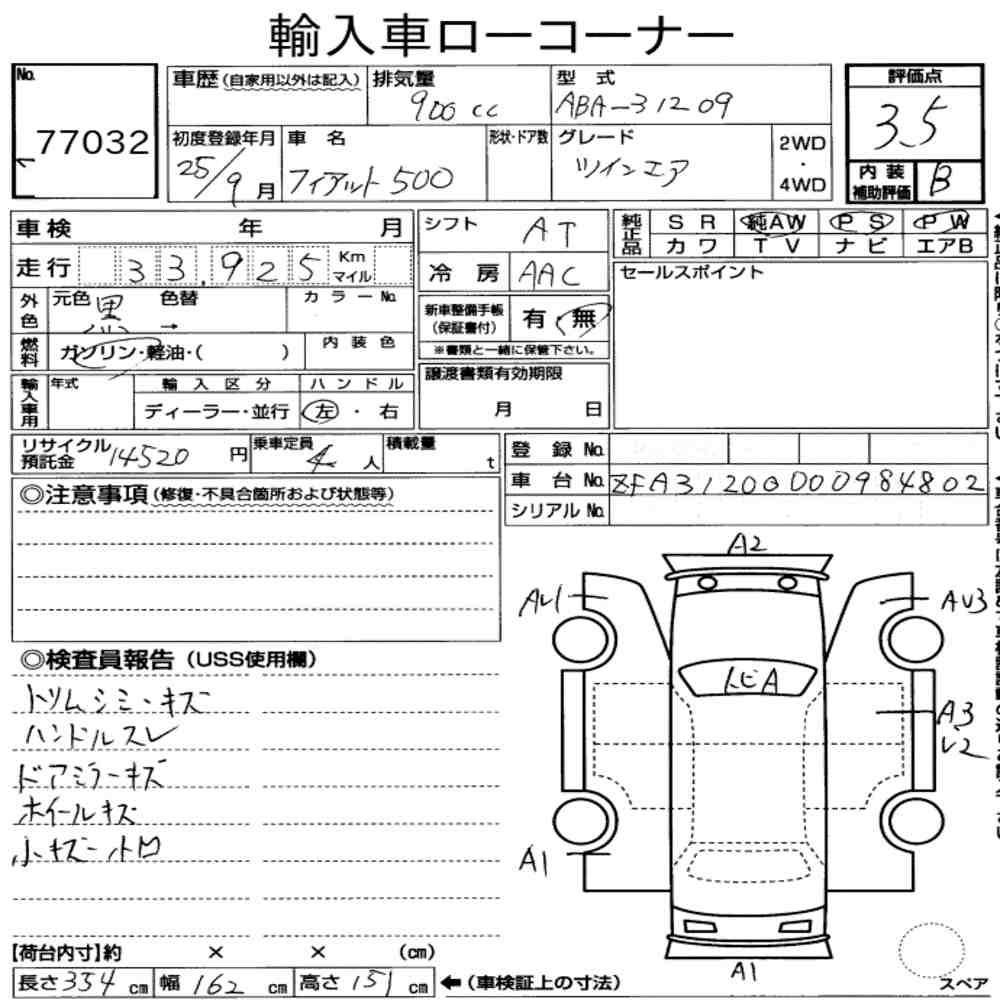 輸入車ローコーナー
No. 77032
車歴(自家用以外は記入) 排気量 900cc 型式 ABA-31209
初度登録年月 25/9月 車名 フィアット500 形状・ドア数 グレード ツインエア 2WD・4WD
評価点 3.5
内装補助評価 B
車検 年 月
走行 33,925 Km マイル
外色 元色 黒 色替 → カラーNo.
燃料 ガソリン・軽油・( ) 内装色
輸入車用 年式 輸入区分 ハンドル
ディーラー・並行 左・右
シフト AT
冷房 AAC
新車整備手帳(保証書付) 有・無
※書類と一緒に保管下さい。
譲渡書類有効期限
月 日
純正品 SR 純AW PS PW
カワ TV ナビ エアB
セールスポイント
リサイクル預託金 14520円 乗車定員 4人 積載量 t
登録No.
車台No. ZFA3120000984802
シリアルNo.
◎注意事項(修復・不具合箇所および状態等)
◎検査員報告(USS使用欄)
トリムシミ・キズ
ハンドルスレ
ドアミラーキズ
ホイールキズ
小キズ 小凹
A2
AU1
AU3
トビA
A3
U2
A1
A1
スペア
【荷台内寸】約 × × (cm)
長さ354cm 幅162cm 高さ151cm ←(車検証上の寸法)